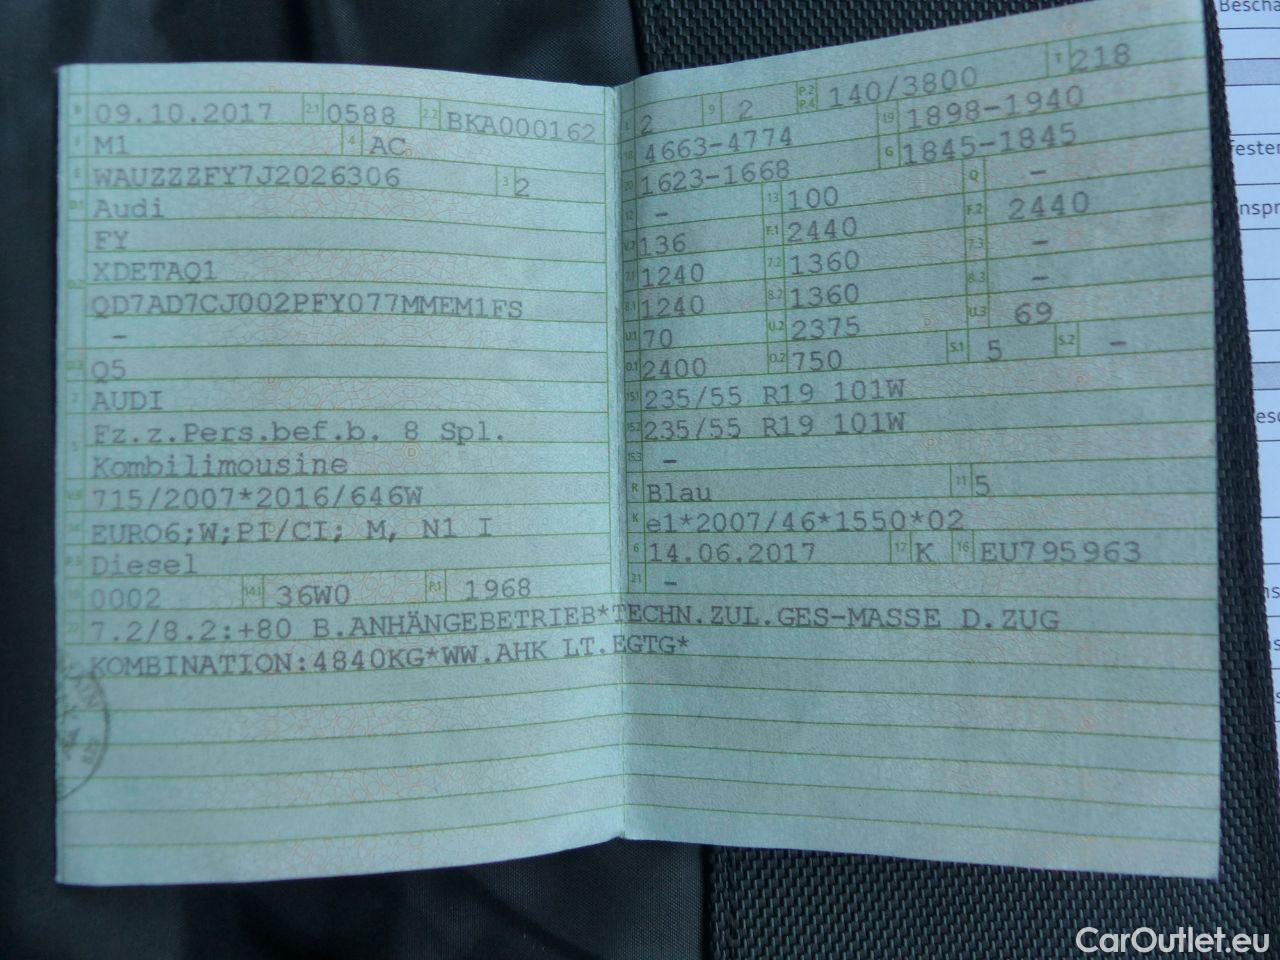 B 09.10.2017 2.1 0588 2.2 BKA000162
J M1 4 AC
E WAUZZZFY7J2026306 3 2
D.1 Audi
FY
D.2 XDETAQ1
QD7AD7CJ002PFY077MMEM1FS
–
D.3 Q5
2 AUDI
5 Fz.z.Pers.bef.b. 8 Spl.
Kombilimousine
V.9 715/2007*2016/646W
14 EURO6;W;PI/CI; M, N1 I
P.3 Diesel
10 0002 14.1 36W0 P.1 1968
22 7.2/8.2:+80 B.ANHÄNGEBETRIEB*TECHN.ZUL.GES-MASSE D.ZUG
KOMBINATION:4840KG*WW.AHK LT.EGTG*
L 2 9 2 P.2 P.4 140/3800 T 218
18 4663-4774 19 1898-1940
20 1623-1668 G 1845-1845
12 – 13 100 Q –
V.7 136 F.1 2440 F.2 2440
7.1 1240 7.2 1360 7.3 –
8.1 1240 8.2 1360 8.3 –
U.1 70 U.2 2375 U.3 69
O.1 2400 O.2 750 S.1 5 S.2 –
15.1 235/55 R19 101W
15.2 235/55 R19 101W
15.3 –
R Blau 11 5
K e1*2007/46*1550*02
6 14.06.2017 17 K 16 EU795963
21 –
CarOutlet.eu